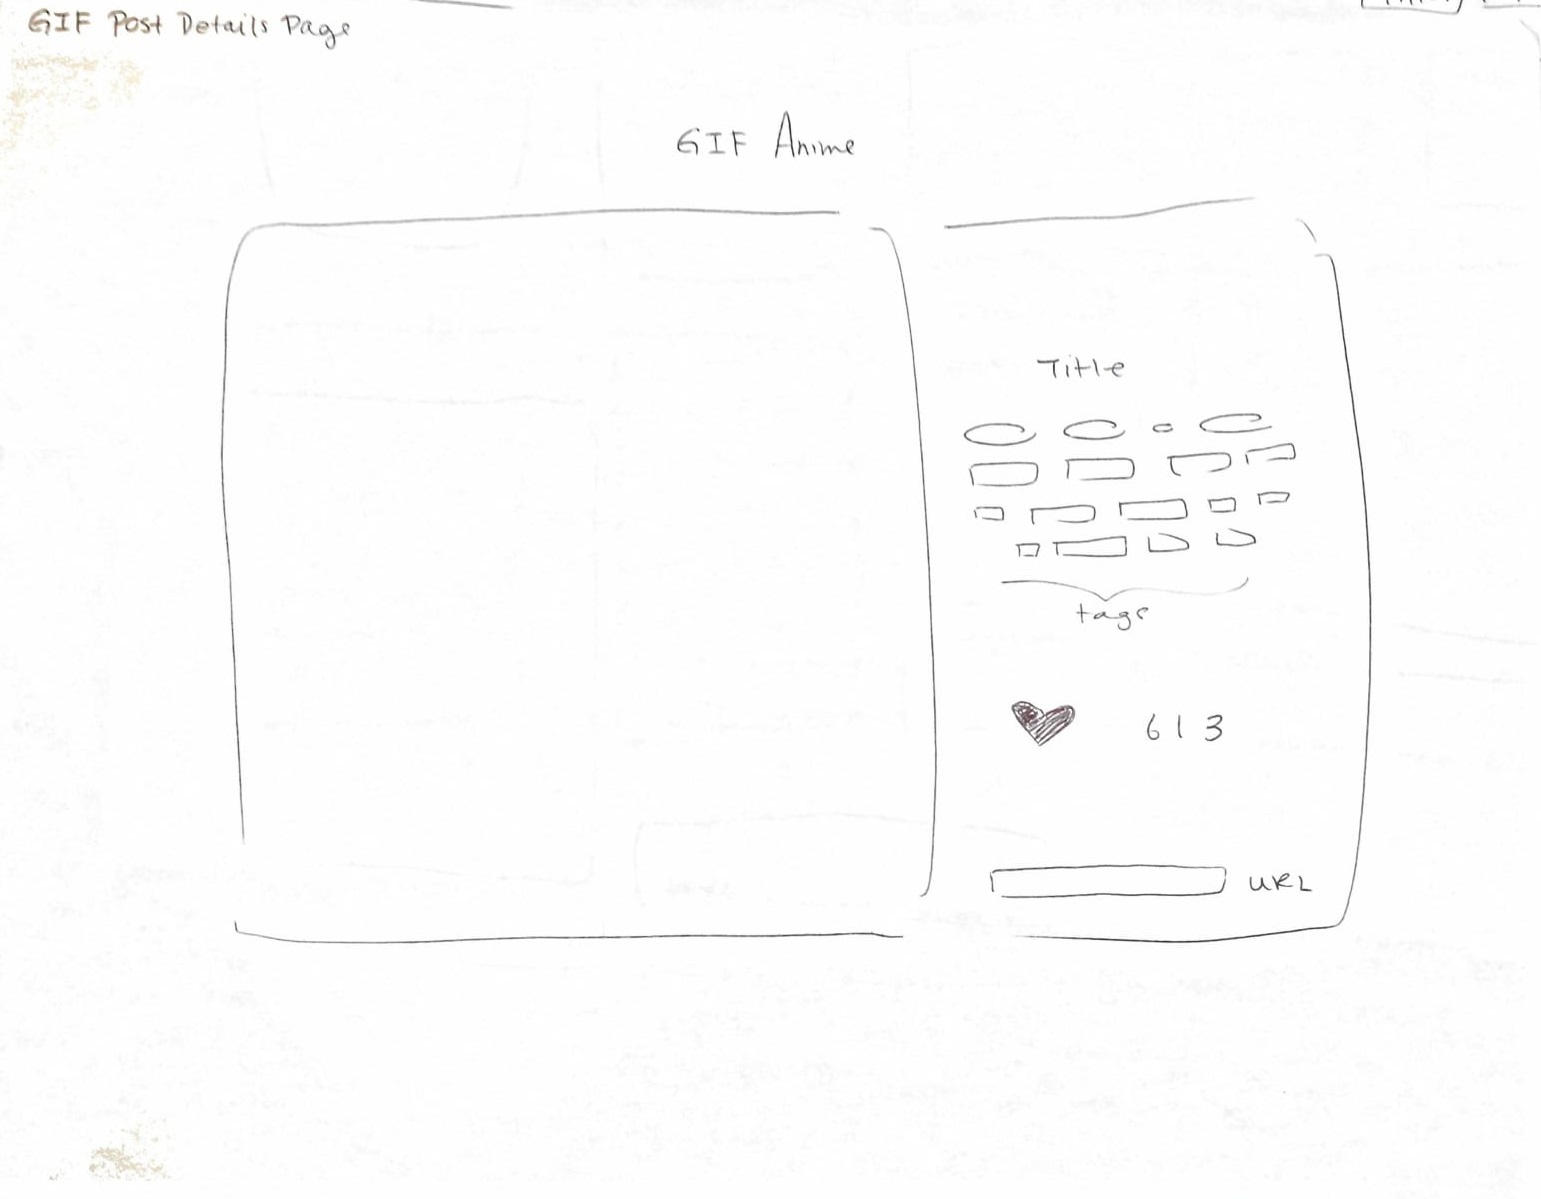 GIF Post Details Page
GIF Anime
Title
tags
613
URL